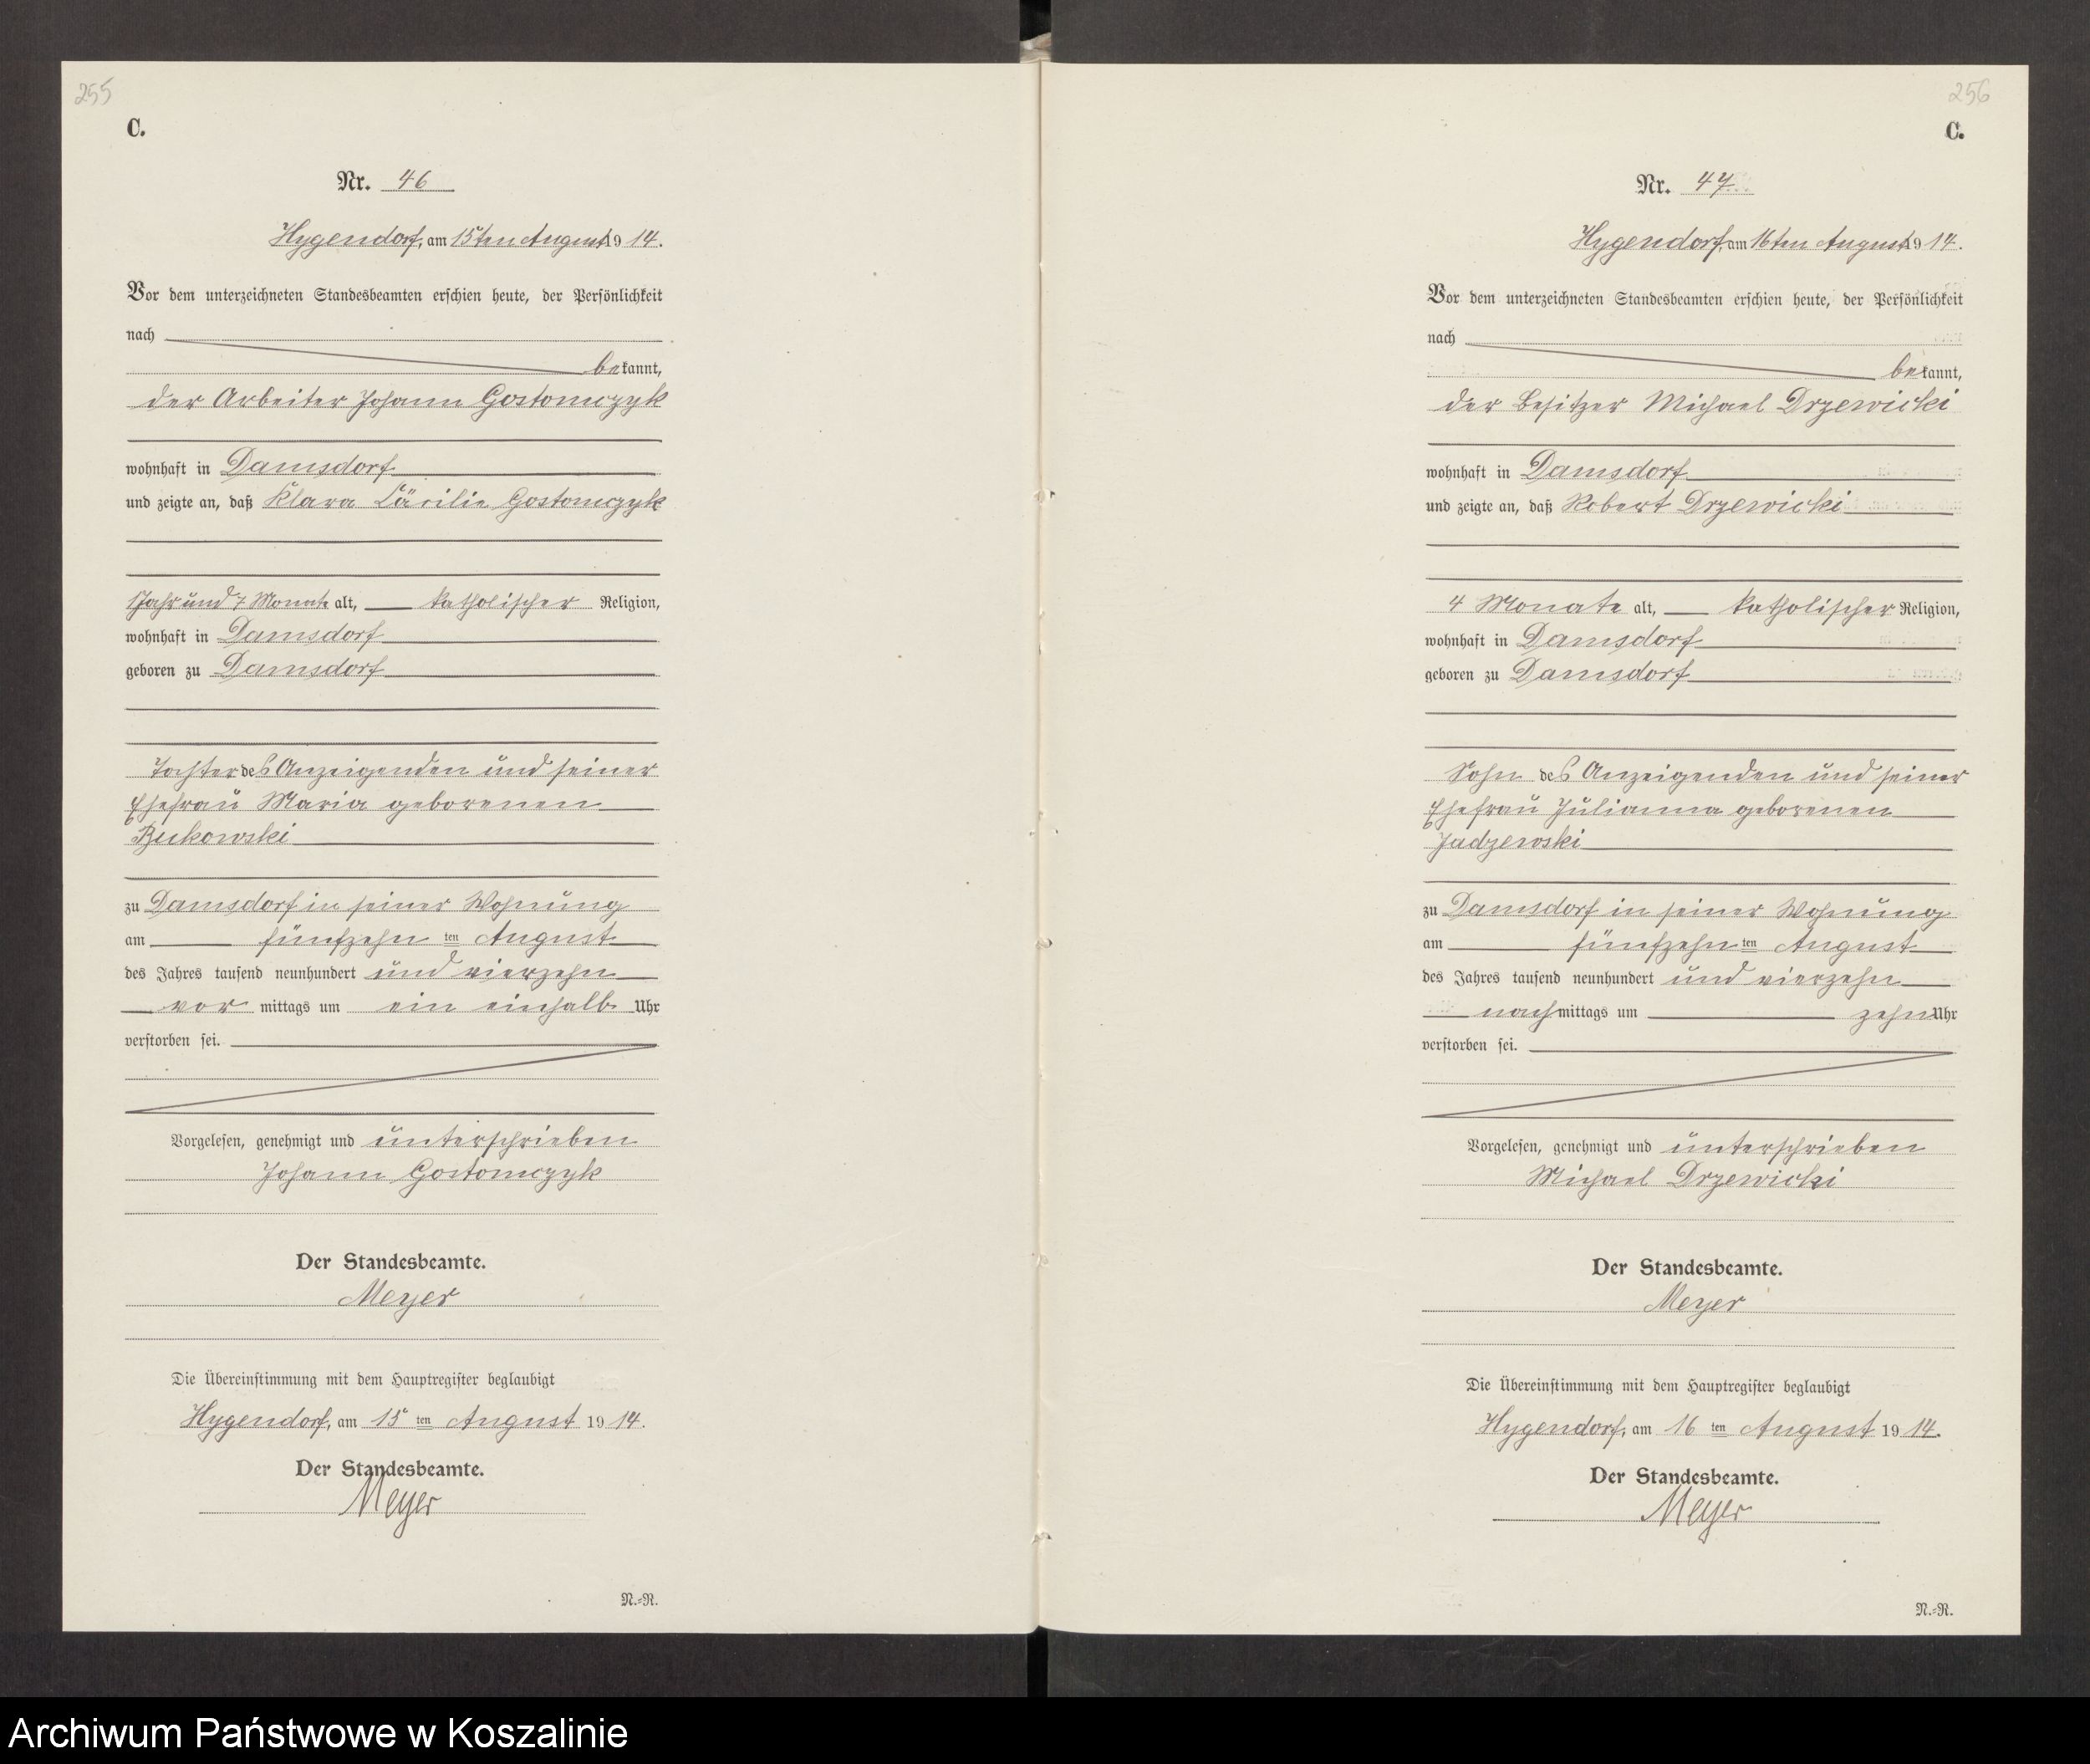 255
C.
Nr. 46
Hygendorf, am 15ten August 1914.
Vor dem unterzeichneten Standesbeamten erschien heute, der Persönlichkeit
nach
bekannt,
der Arbeiter Johann Gostomczyk
wohnhaft in Damsdorf
und zeigte an, daß Klara Cäcilie Gostomczyk
1 Jahr und 7 Monate alt, katholischer Religion,
wohnhaft in Damsdorf
geboren zu Damsdorf
Tochter des Anzeigenden und seiner
Ehefrau Maria geborenen
Bukowski
zu Damsdorf in seiner Wohnung
am fünfzehn ten August
des Jahres tausend neunhundert und vierzehn
vor mittags um ein einhalb Uhr
verstorben sei.
Vorgelesen, genehmigt und unterschrieben
Johann Gostomczyk
Der Standesbeamte.
Meyer
Die Übereinstimmung mit dem Hauptregister beglaubigt
Hygendorf, am 15 ten August 1914.
Der Standesbeamte.
Meyer
N.=R.
256
C.
Nr. 47
Hygendorf, am 16ten August 1914.
Vor dem unterzeichneten Standesbeamten erschien heute, der Persönlichkeit
nach
bekannt,
der Besitzer Michael Drzewicki
wohnhaft in Damsdorf
und zeigte an, daß Robert Drzewicki
4 Monate alt, katholischer Religion,
wohnhaft in Damsdorf
geboren zu Damsdorf
Sohn des Anzeigenden und seiner
Ehefrau Julianna geborenen
Jadzewski
zu Damsdorf in seiner Wohnung
am fünfzehn ten August
des Jahres tausend neunhundert und vierzehn
nachmittags um zehn Uhr
verstorben sei.
Vorgelesen, genehmigt und unterschrieben
Michael Drzewicki
Der Standesbeamte.
Meyer
Die Übereinstimmung mit dem Hauptregister beglaubigt
Hygendorf, am 16 ten August 1914.
Der Standesbeamte.
Meyer
N.=R.
Archiwum Państwowe w Koszalinie